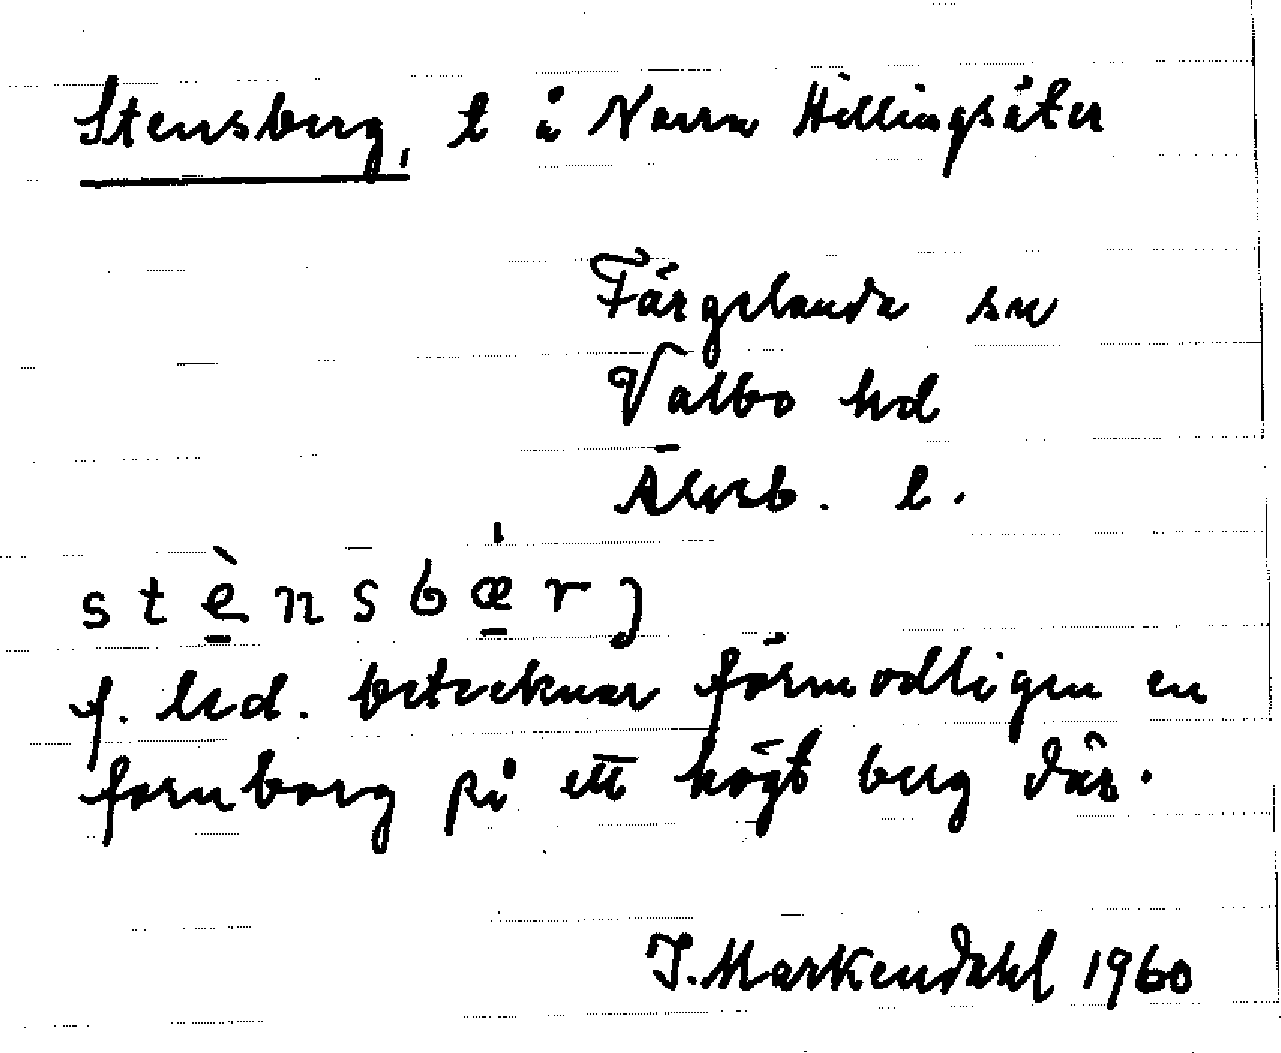 Stensberg, t i Norra Hillingsäter
Färgelanda sn
Valbo hd
Älvsb. l.
stènsbærj
f. led. betecknar förmodligen en
fornborg på ett högt berg där.
J. Markendahl 1960